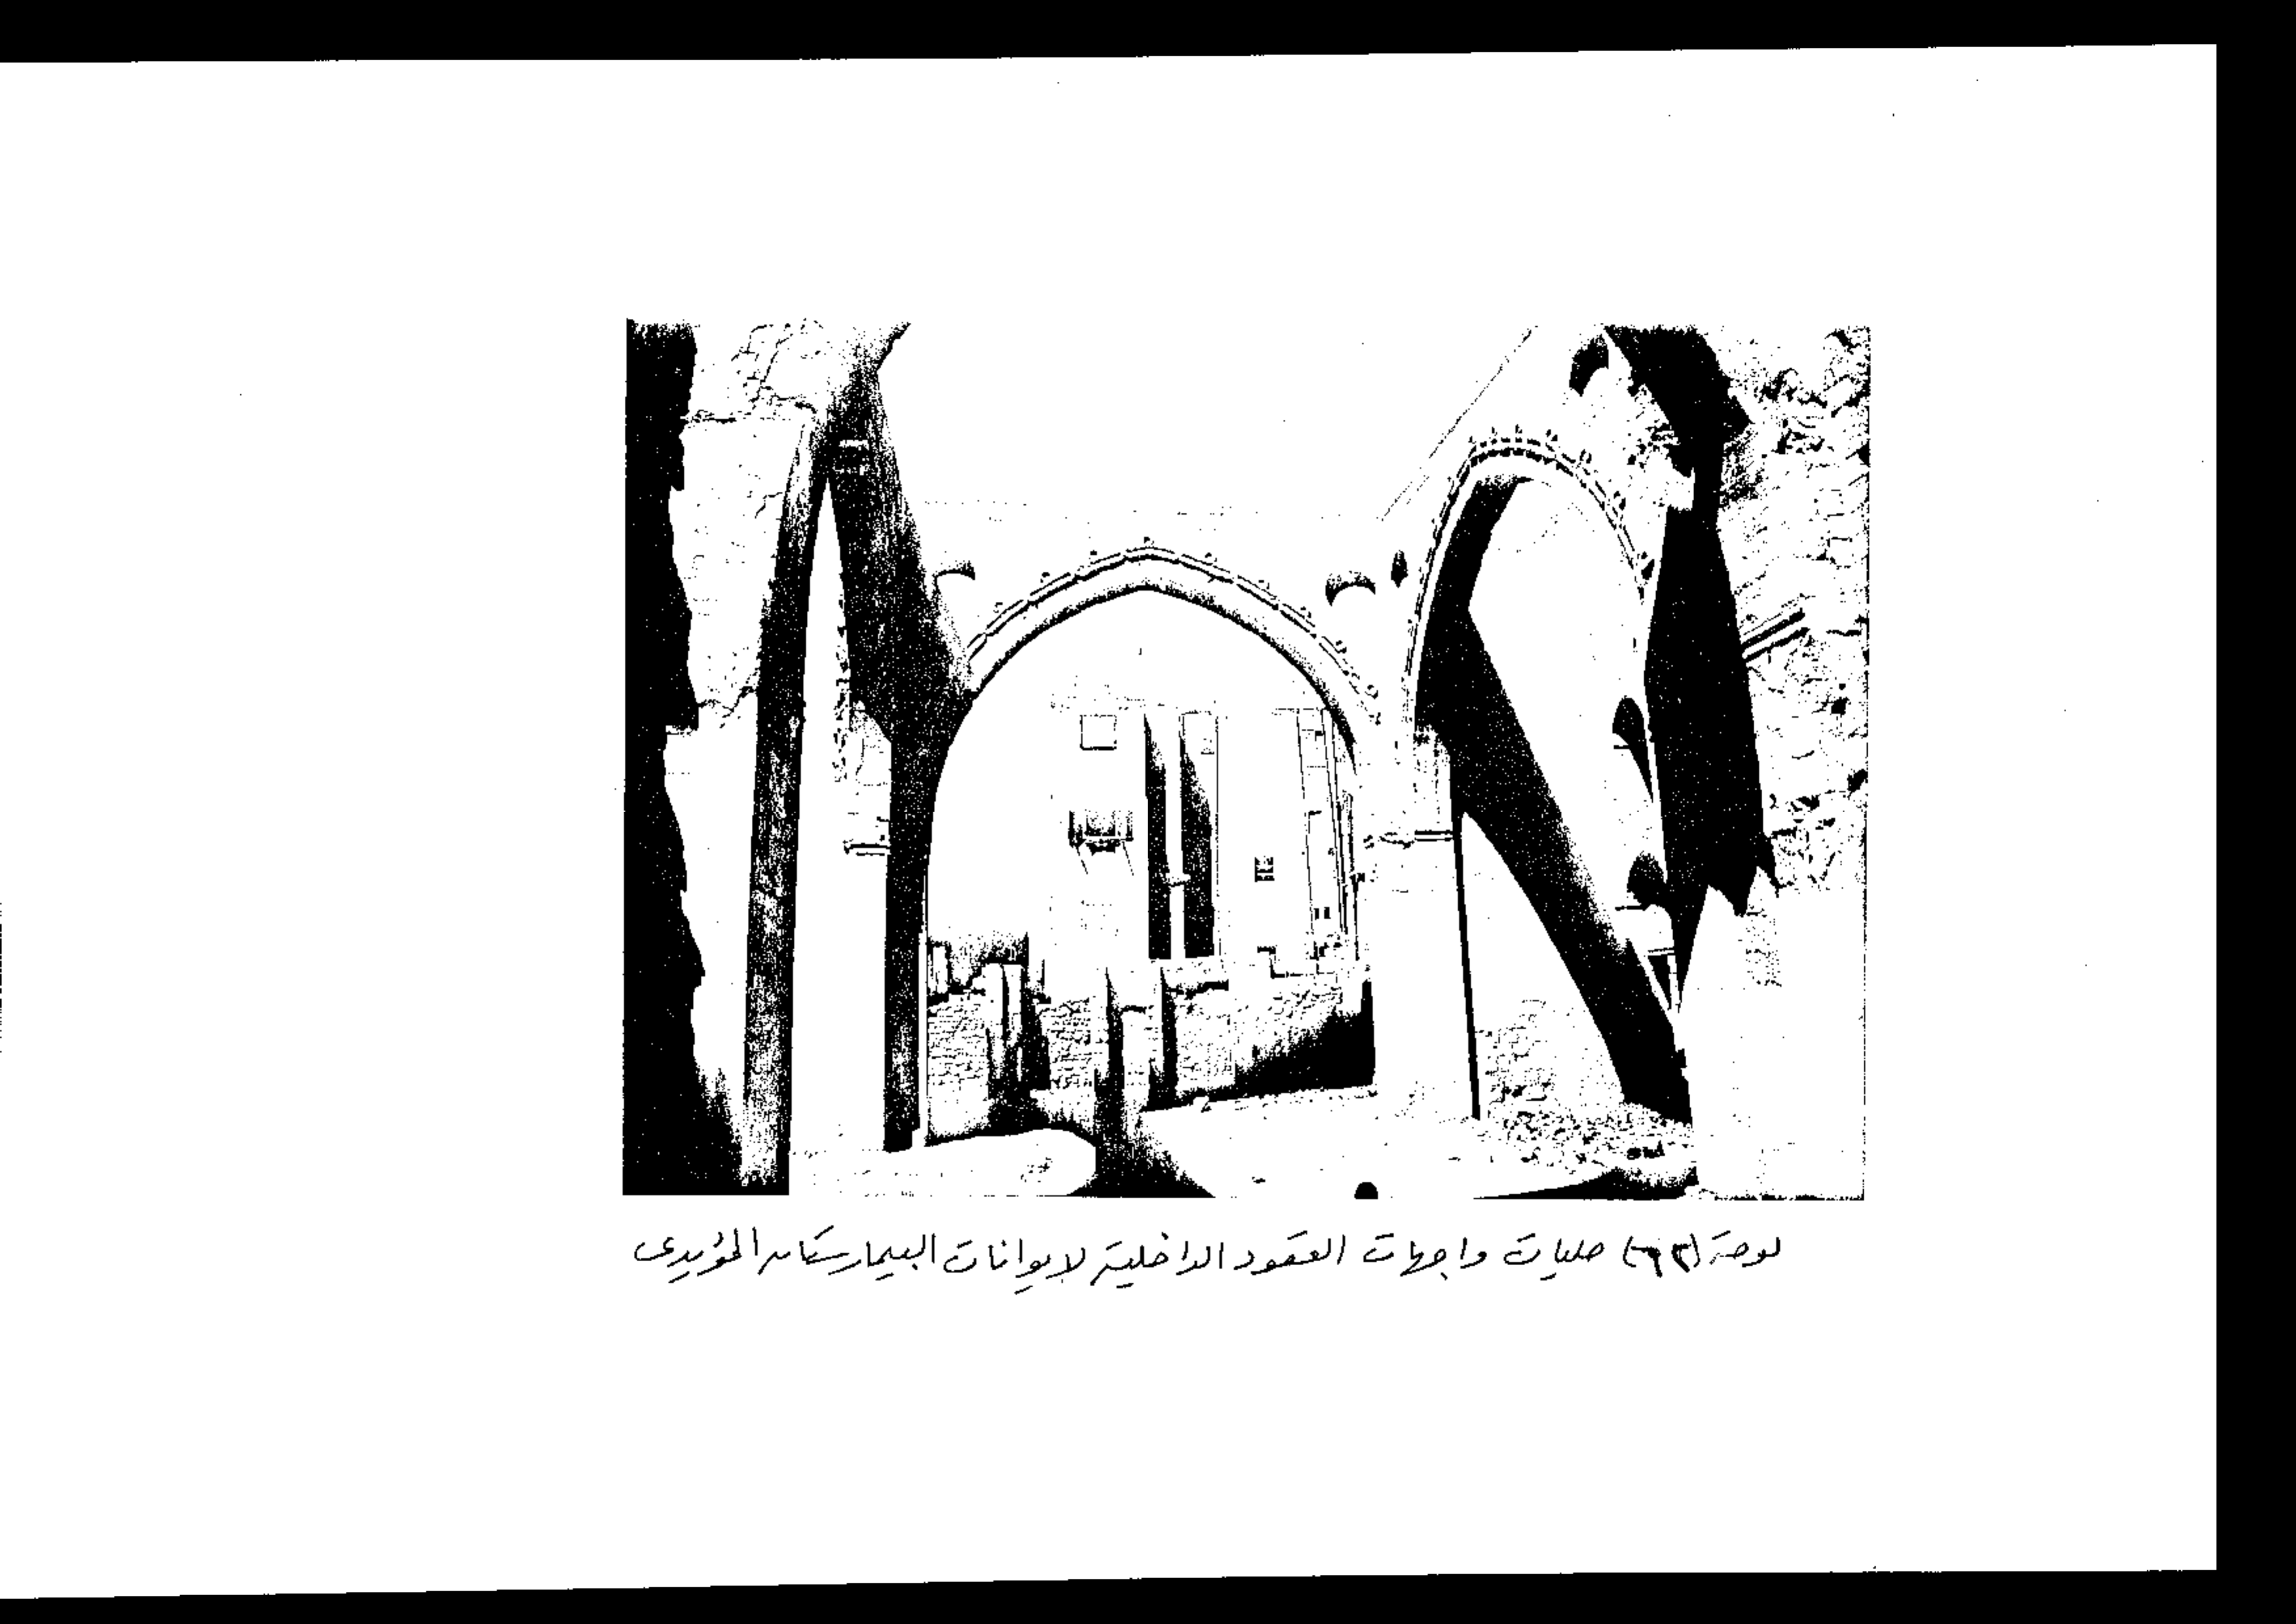 لوحة (٦٢) حليات واجهات العقود الداخلية لايوانات البيمارستان المؤيدى